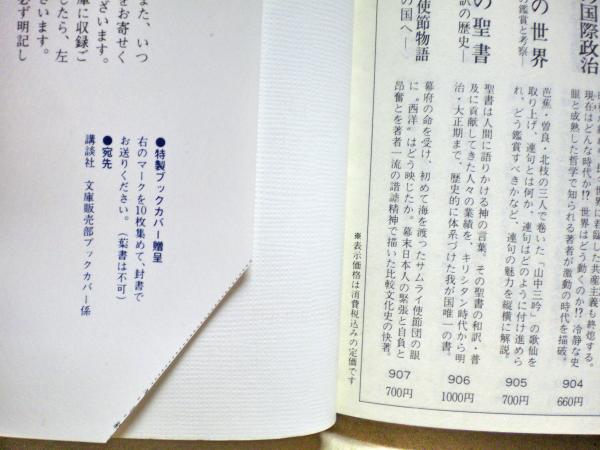 また、いつ
をお寄せく
ざいます。
庫に収録ご
したら、左
います。
必ず明記し
●特製ブックカバー贈呈
右のマークを10枚集めて、封書で
お送りください。（葉書は不可）
●宛先
講談社 文庫販売部ブックカバー係
の国際政治
現在はどんな時代か⁉ 世界はどう動くのか⁉ 冷静な史
眼と成熟した哲学で知られる著者が激動の時代を描破。
904
660円
の世界
の鑑賞と考察―
芭蕉・曽良・北枝の三人で巻いた「山中三吟」の歌仙を
取り上げ、連句とは何か、連句はどのように付け進めら
れ、どう鑑賞すべきかなど、連句の魅力を縦横に解説。
905
700円
の聖書
訳の歴史―
聖書は人間に語りかける神の言葉。その聖書の和訳・普
及に貢献してきた人々の業績を、キリシタン時代から明
治・大正期まで、歴史的に体系づけた我が国唯一の書。
906
1000円
使節物語
の国へ―
幕府の命を受け、初めて海を渡ったサムライ使節団の眼
に〝西洋〟はどう映じたか。幕末日本人の緊張と自負と
昂奮とを著者一流の諧謔精神で描いた比較文化史の快著。
907
700円
※表示価格は消費税込みの定価です